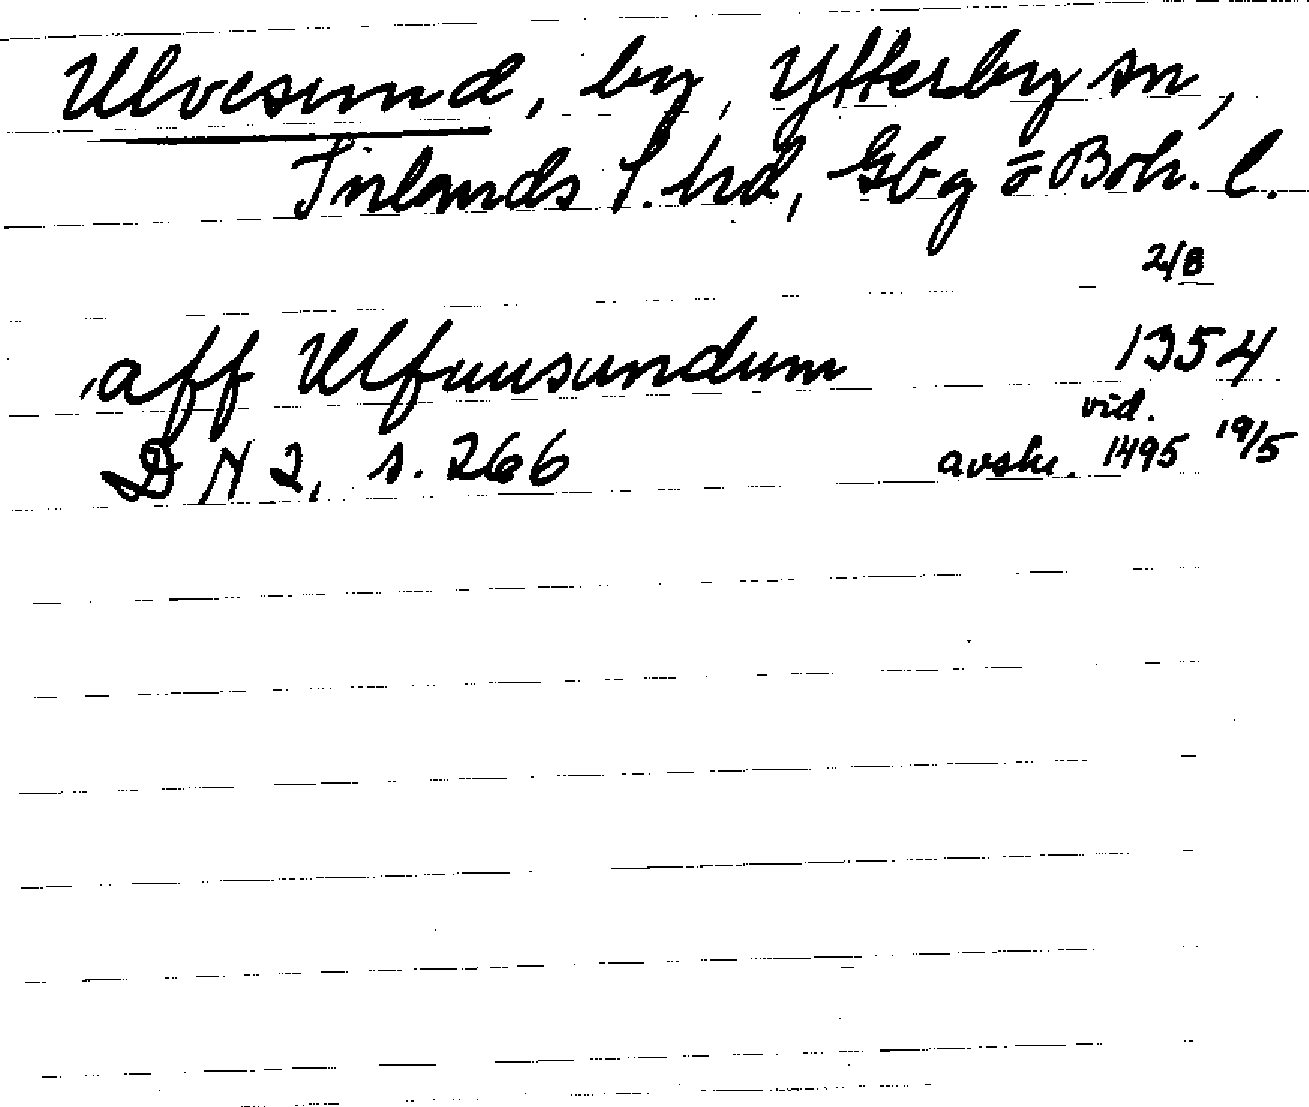 Ulvesund, by, Ytterby sn,
Inlands S. hd, Gbg o Boh. l.
2/8
aff Ulfuusundum 1354
vid.
DN 2, s. 266 avskr. 1495 19/5